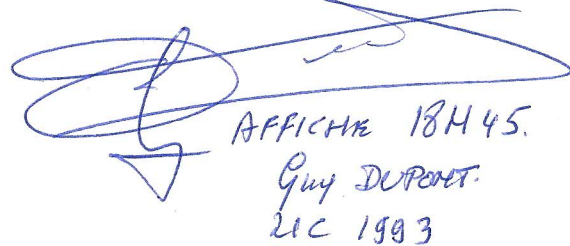 AFFICHE 18H45.
Guy DUPONT.
21C 1993